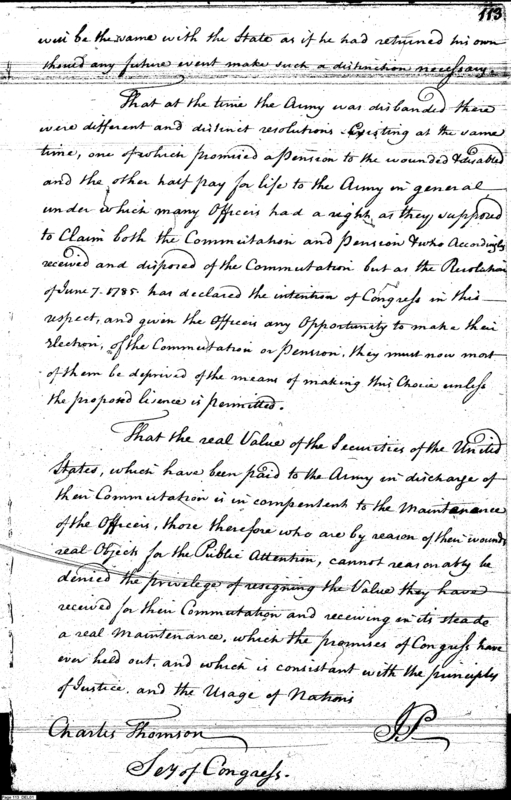 113
will be the same with the State as if he had returned his own
should any future event make such a distinction necessary.
That at the time the Army was disbanded there
were different and distinct resolutions Existing at the same
time, one of which promised a Pension to the wounded & disabled
and the other half pay for life to the Army in general
under which many Officers had a right, as they supposed
to Claim both the Commutation and Pension & who Accordingly
received and disposed of the Commutation but as the Resolution
of June 7. 1785 has declared the intention of Congress in this
respect, and given the Officers any Opportunity to make their
Election, of the Commutation or Pension, they must now most
of them be deprived of the means of making this Choice unless
the proposed licence is permitted.
That the real Value of the Securities of the United
States, which have been paid to the Army in discharge of
their Commutation is in compentent to the Maintenance
of the Officers, those therefore who are by reason of their wounds
real Objects for the Public Attention, cannot reasonably be
denied the privelege of resigning the Value they have
received for their Commutation and receiving in its steade
a real Maintenance, which the promises of Congress have
ever held out, and which is consistant with the principles
of Justice, and the Usage of Nations
Charles Thomson JP
Secy of Congress.